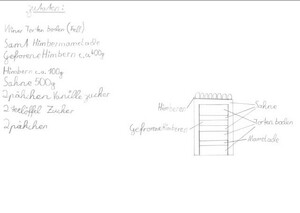 Zutaten:
Wiener Tortenboden (Hell)
Samt Himbermarmelade
Gefrorene Himbern ca 400g
Himbern ca. 100g
Sahne 500g
2 päkchen Vanille zucker
2 esslöffel Zucker
2 päkchen
Himberen
Gefrorene Himberen
Sahne
Tortenboden
Mamelade